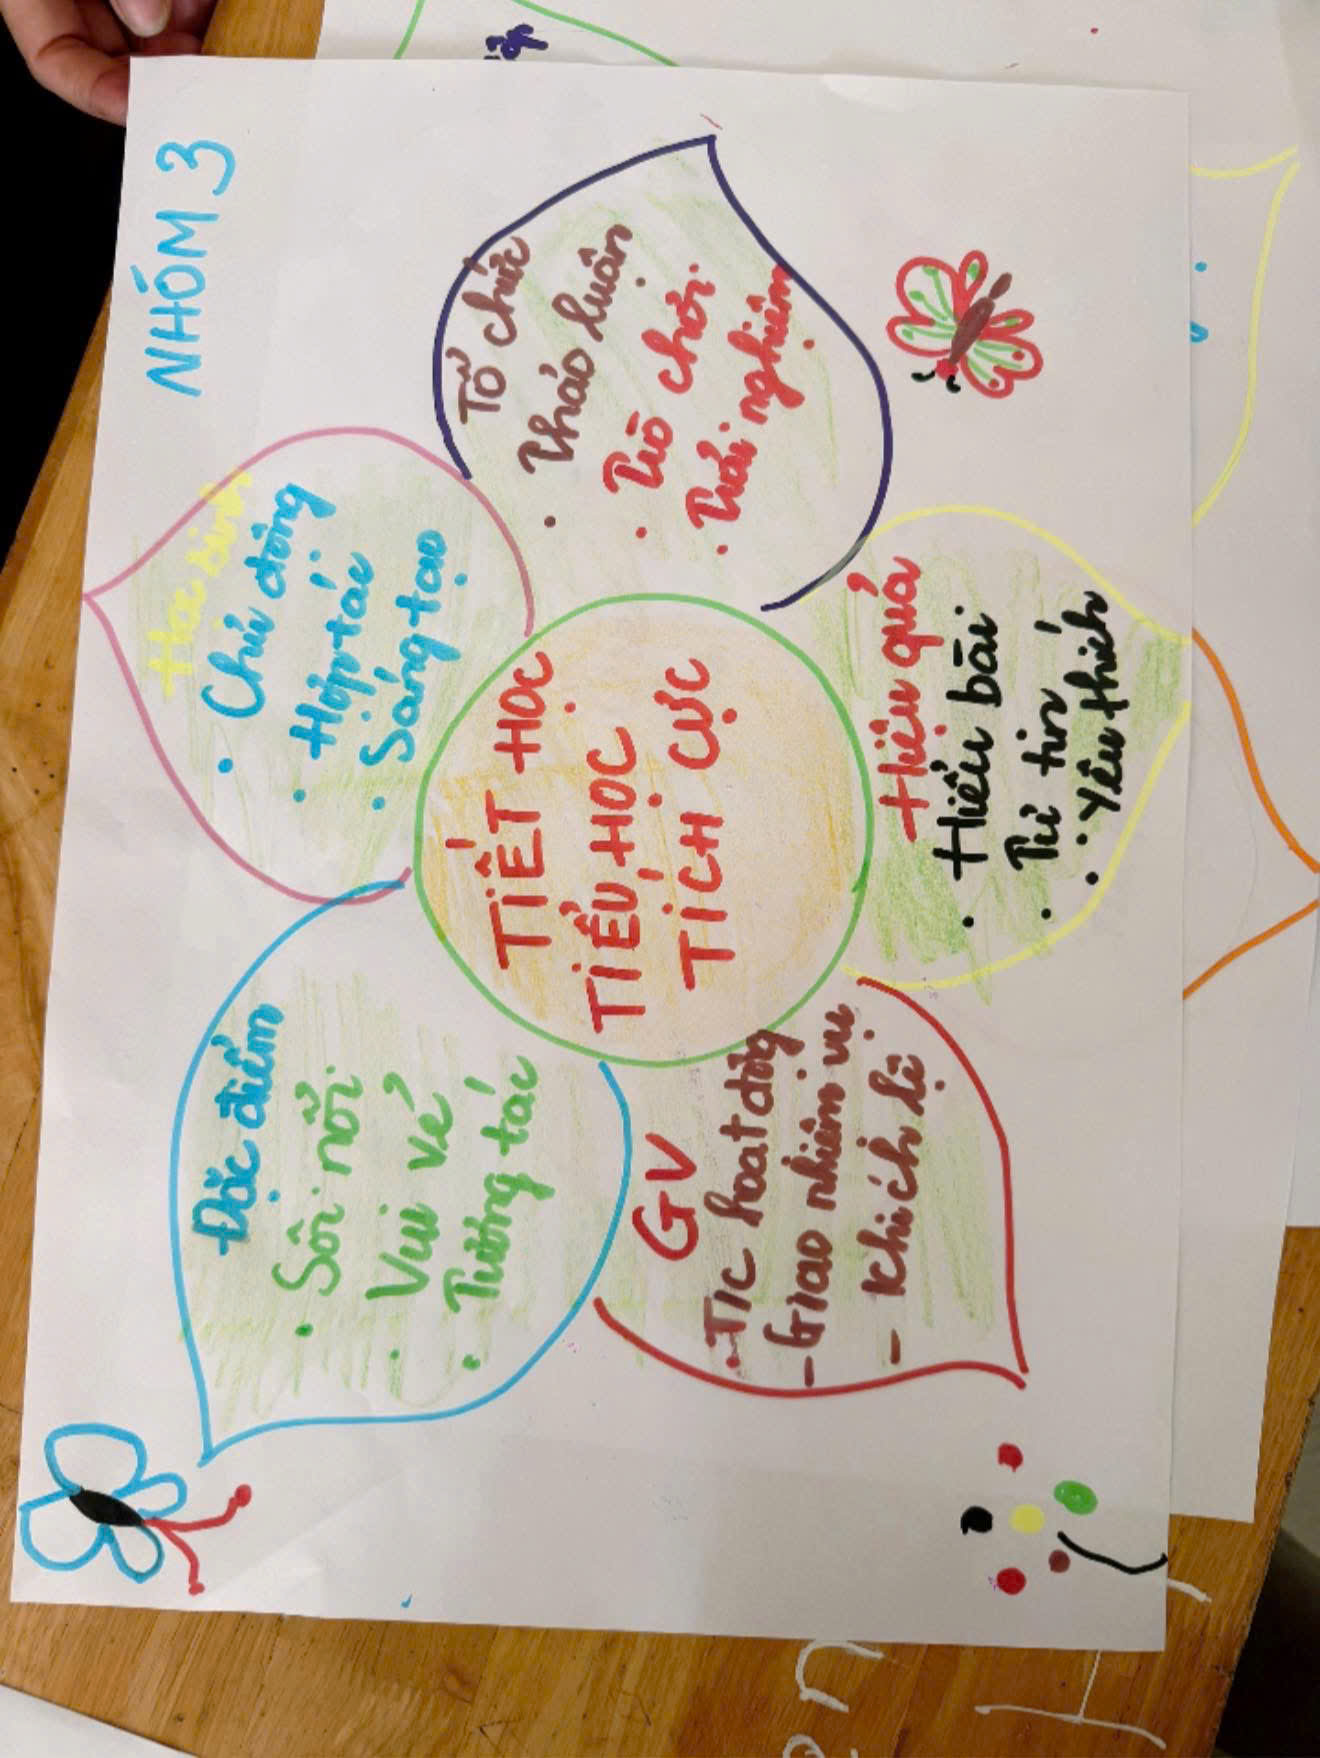 NHÓM 3
TIẾT HỌC
TIỂU HỌC
TÍCH CỰC
Đặc điểm
• Sôi nổi
• Vui vẻ
• Tương tác
Học sinh
• Chủ động
• Hợp tác
• Sáng tạo
Tổ chức
• Thảo luận
• Trò chơi
• Trải nghiệm
Hiệu quả
• Hiểu bài
• Tự tin
• Yêu thích
GV
• T/C hoạt động
- Giao nhiệm vụ
- Khích lệ